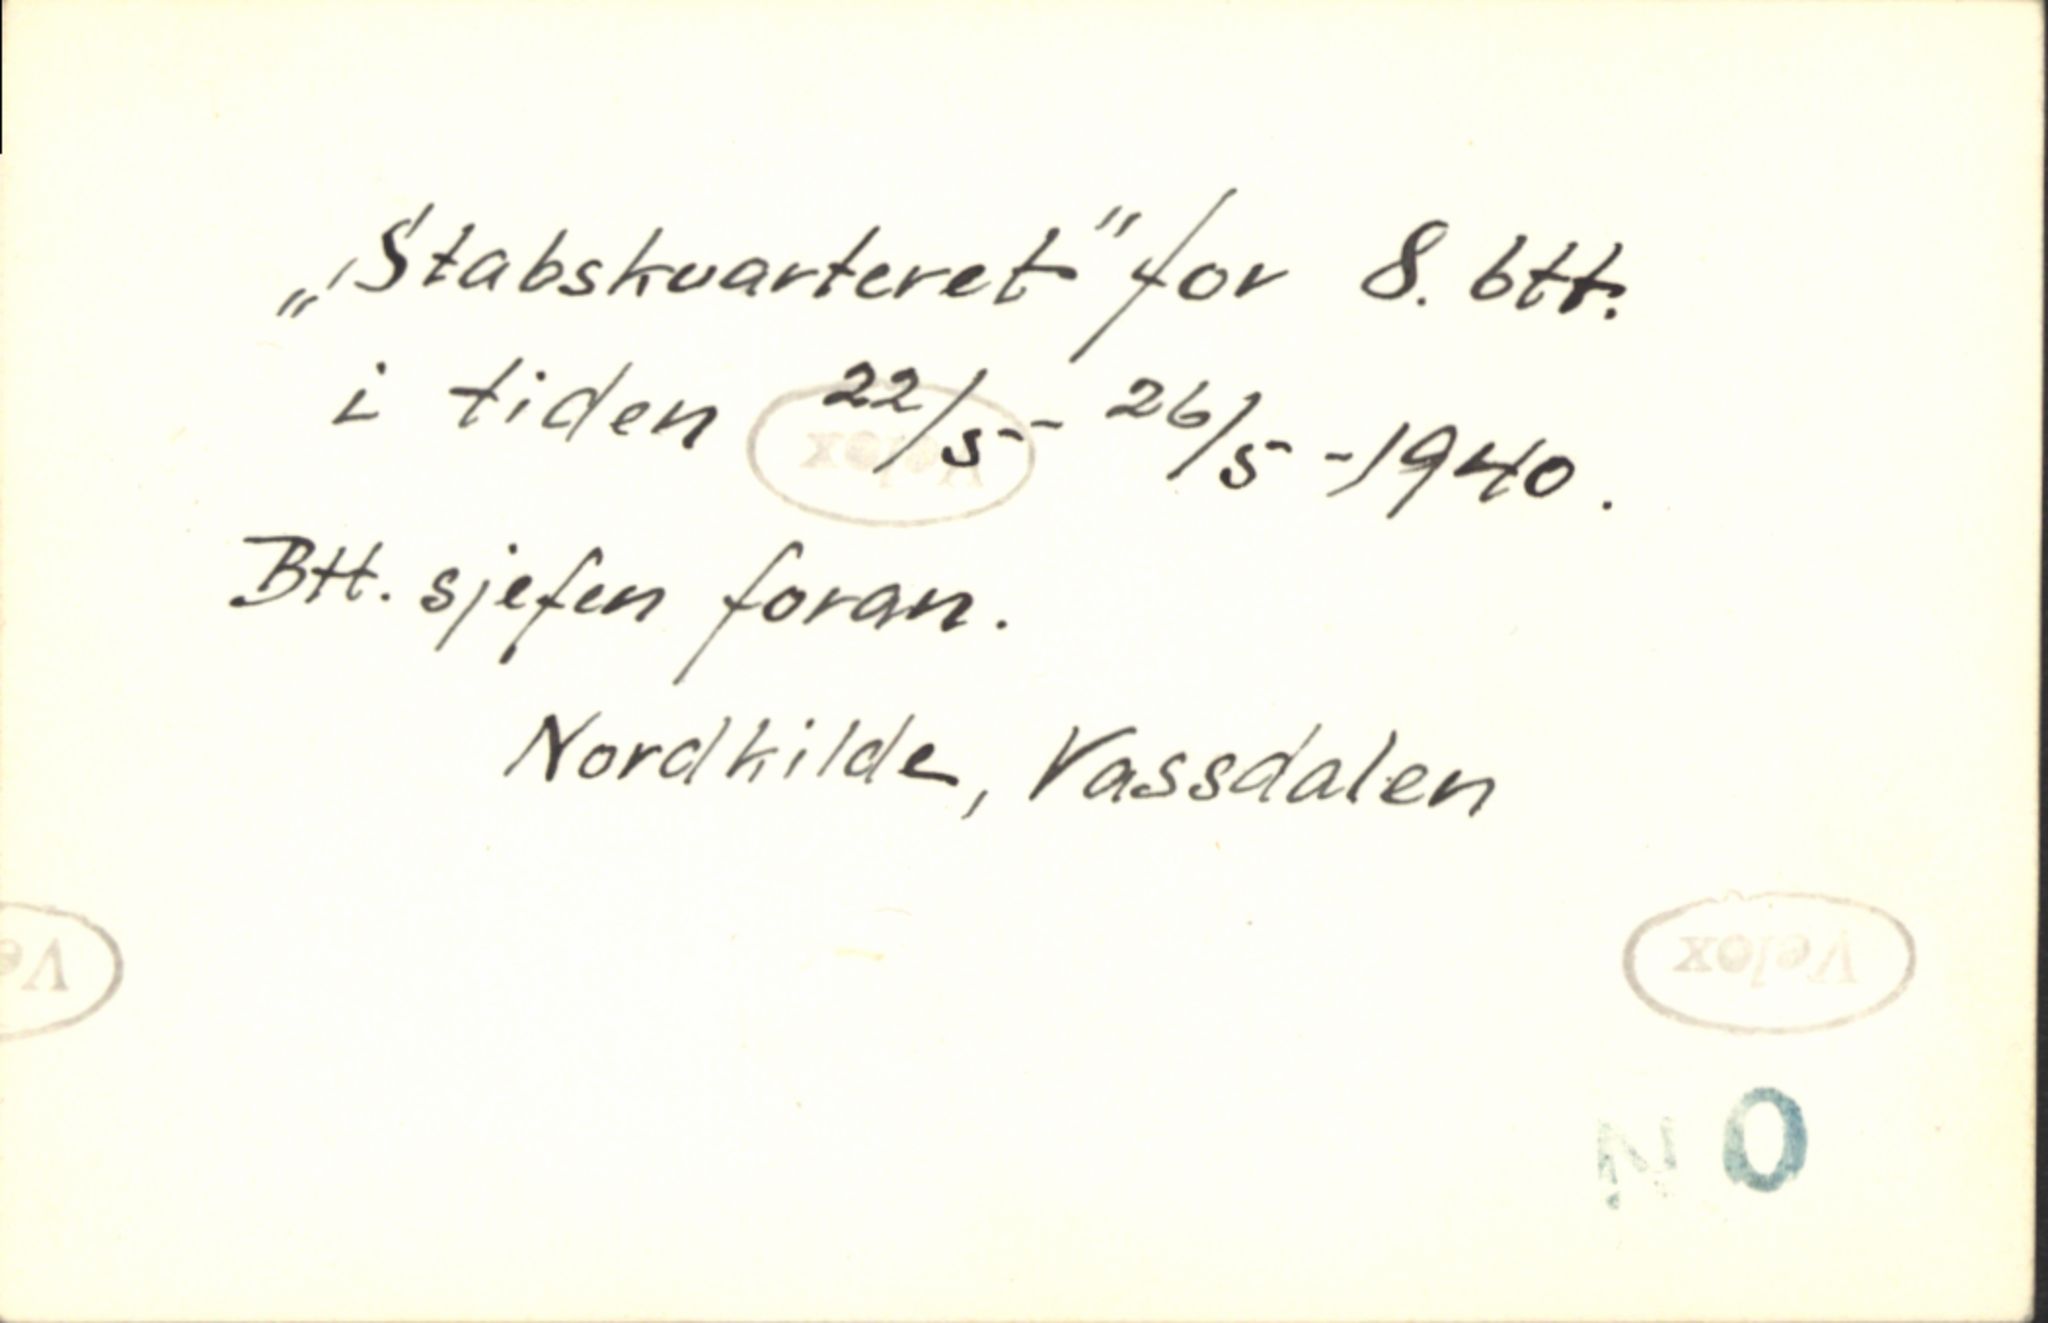 „Stabskvarteret" for 8. btt.
i tiden 22/5 - 26/5 - 1940.
Btt. sjefen foran.
Nordkilde, Vassdalen
Velox
Velox
Ve
NO